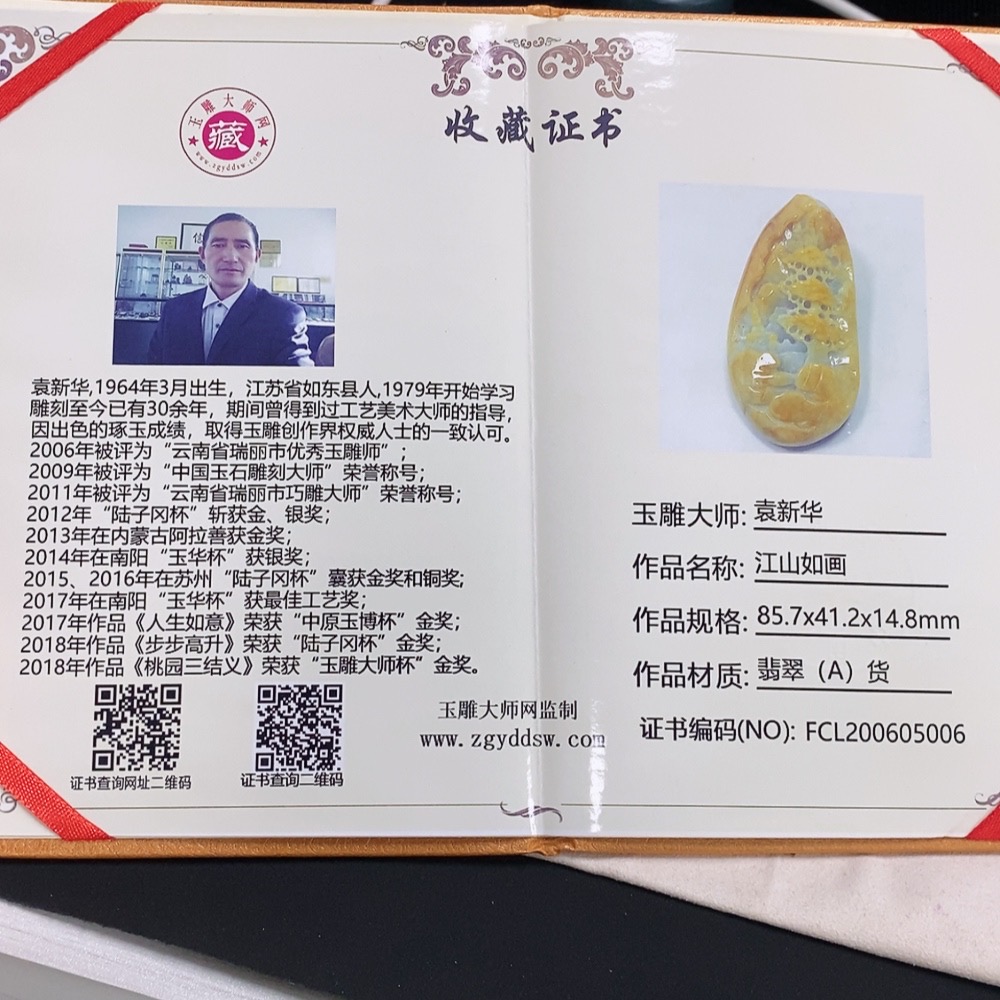 收藏证书
玉雕大师网
藏
www.zgyddsw.com
信
袁新华,1964年3月出生，江苏省如东县人,1979年开始学习
雕刻至今已有30余年，期间曾得到过工艺美术大师的指导，
因出色的琢玉成绩，取得玉雕创作界权威人士的一致认可。
2006年被评为“云南省瑞丽市优秀玉雕师”；
2009年被评为“中国玉石雕刻大师”荣誉称号；
2011年被评为“云南省瑞丽市巧雕大师”荣誉称号；
2012年“陆子冈杯”斩获金、银奖；
2013年在内蒙古阿拉善获金奖；
2014年在南阳“玉华杯”获银奖；
2015、2016年在苏州“陆子冈杯”囊获金奖和铜奖;
2017年在南阳“玉华杯”获最佳工艺奖；
2017年作品《人生如意》荣获“中原玉博杯”金奖；
2018年作品《步步高升》荣获“陆子冈杯”金奖；
2018年作品《桃园三结义》荣获“玉雕大师杯”金奖。
证书查询网址二维码
证书查询二维码
玉雕大师网监制
www.zgyddsw.com
玉雕大师: 袁新华
作品名称: 江山如画
作品规格: 85.7x41.2x14.8mm
作品材质: 翡翠（A）货
证书编码(NO): FCL200605006